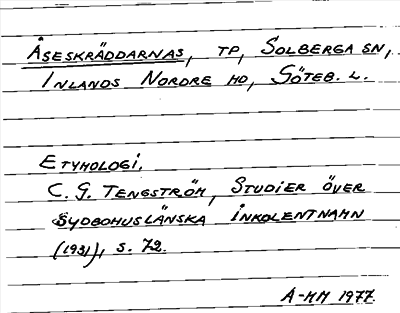 Åseskräddarnas, tp, Solberga sn,
Inlands Nordre hd, Göteb. l.
Etymologi.
C. G. Tengström, Studier över
sydbohuslänska inkolentnamn
(1931), s. 72.
A-MM 1977.